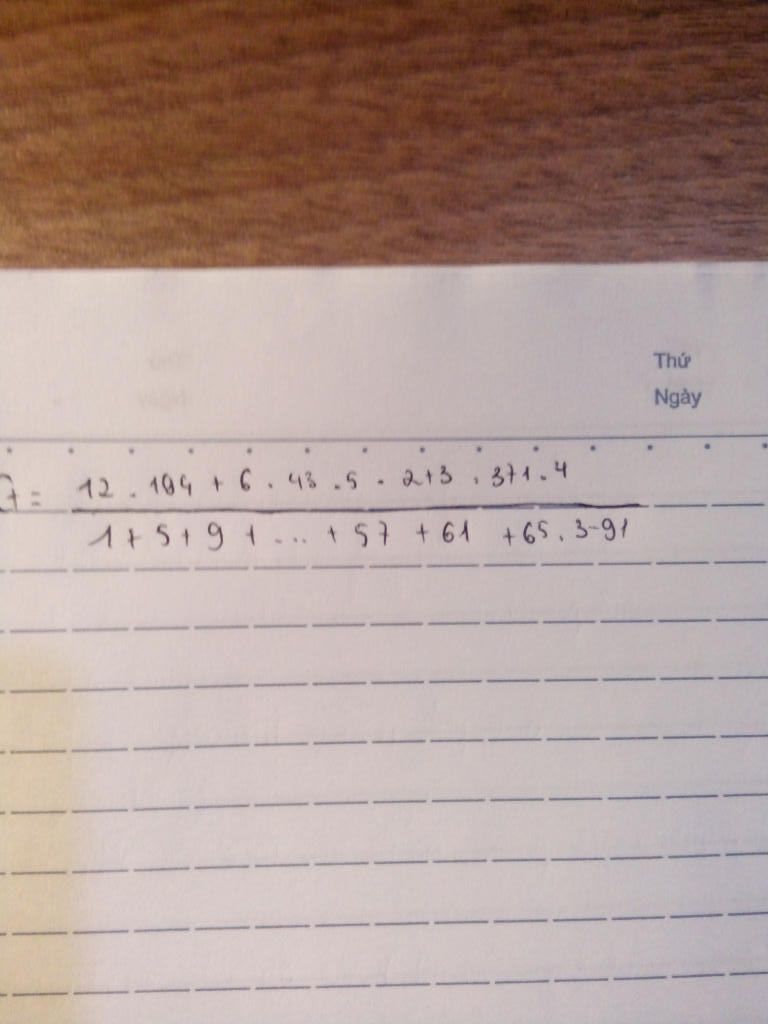 Thứ
Ngày
12 . 194 + 6 . 43 . 5 . 2 + 3 . 371 . 4
1 + 5 + 9 + ... + 57 + 61 + 65 . 3 - 91